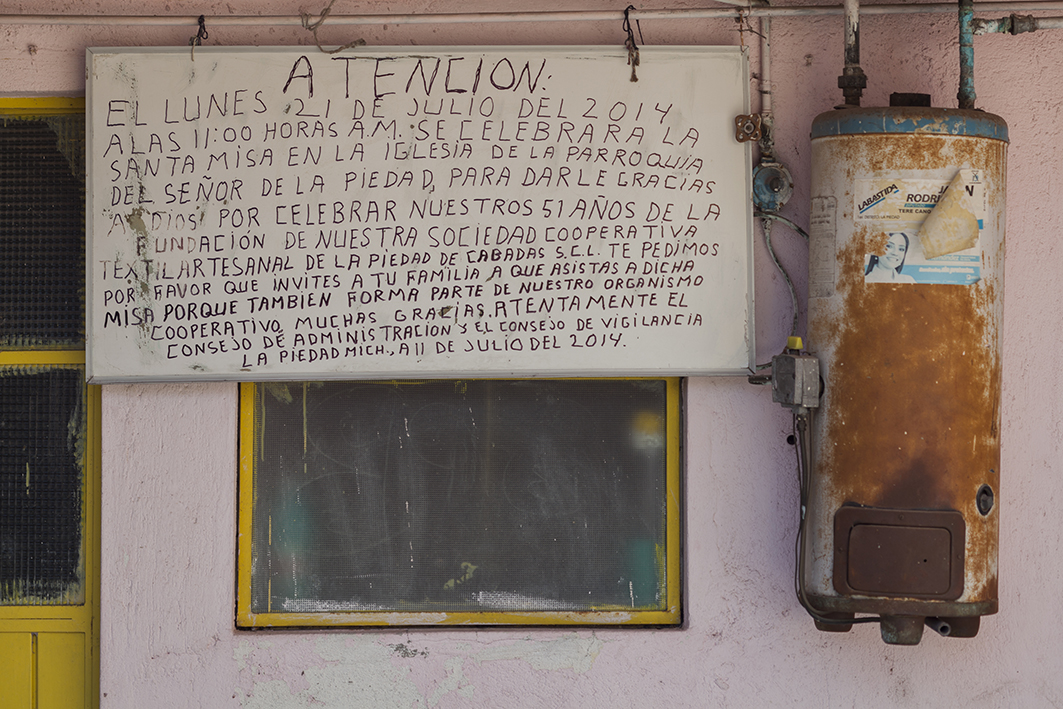 ATENCION:
EL LUNES 21 DE JULIO DEL 2014
A LAS 11:00 HORAS A.M. SE CELEBRARA LA
SANTA MISA EN LA IGLESIA DE LA PARROQUIA
DEL SEÑOR DE LA PIEDAD, PARA DARLE GRACIAS
A DIOS POR CELEBRAR NUESTROS 51 AÑOS DE LA
FUNDACIÓN DE NUESTRA SOCIEDAD COOPERATIVA
TEXTIL ARTESANAL DE LA PIEDAD DE CABADAS S.C.L. TE PEDIMOS
POR FAVOR QUE INVITES A TU FAMILIA A QUE ASISTAS A DICHA
MISA PORQUE TAMBIEN FORMA PARTE DE NUESTRO ORGANISMO
COOPERATIVO, MUCHAS GRACIAS. ATENTAMENTE EL
CONSEJO DE ADMINISTRACION Y EL CONSEJO DE VIGILANCIA
LA PIEDAD MICH., A 11 DE JULIO DEL 2014.
LABASTIDA